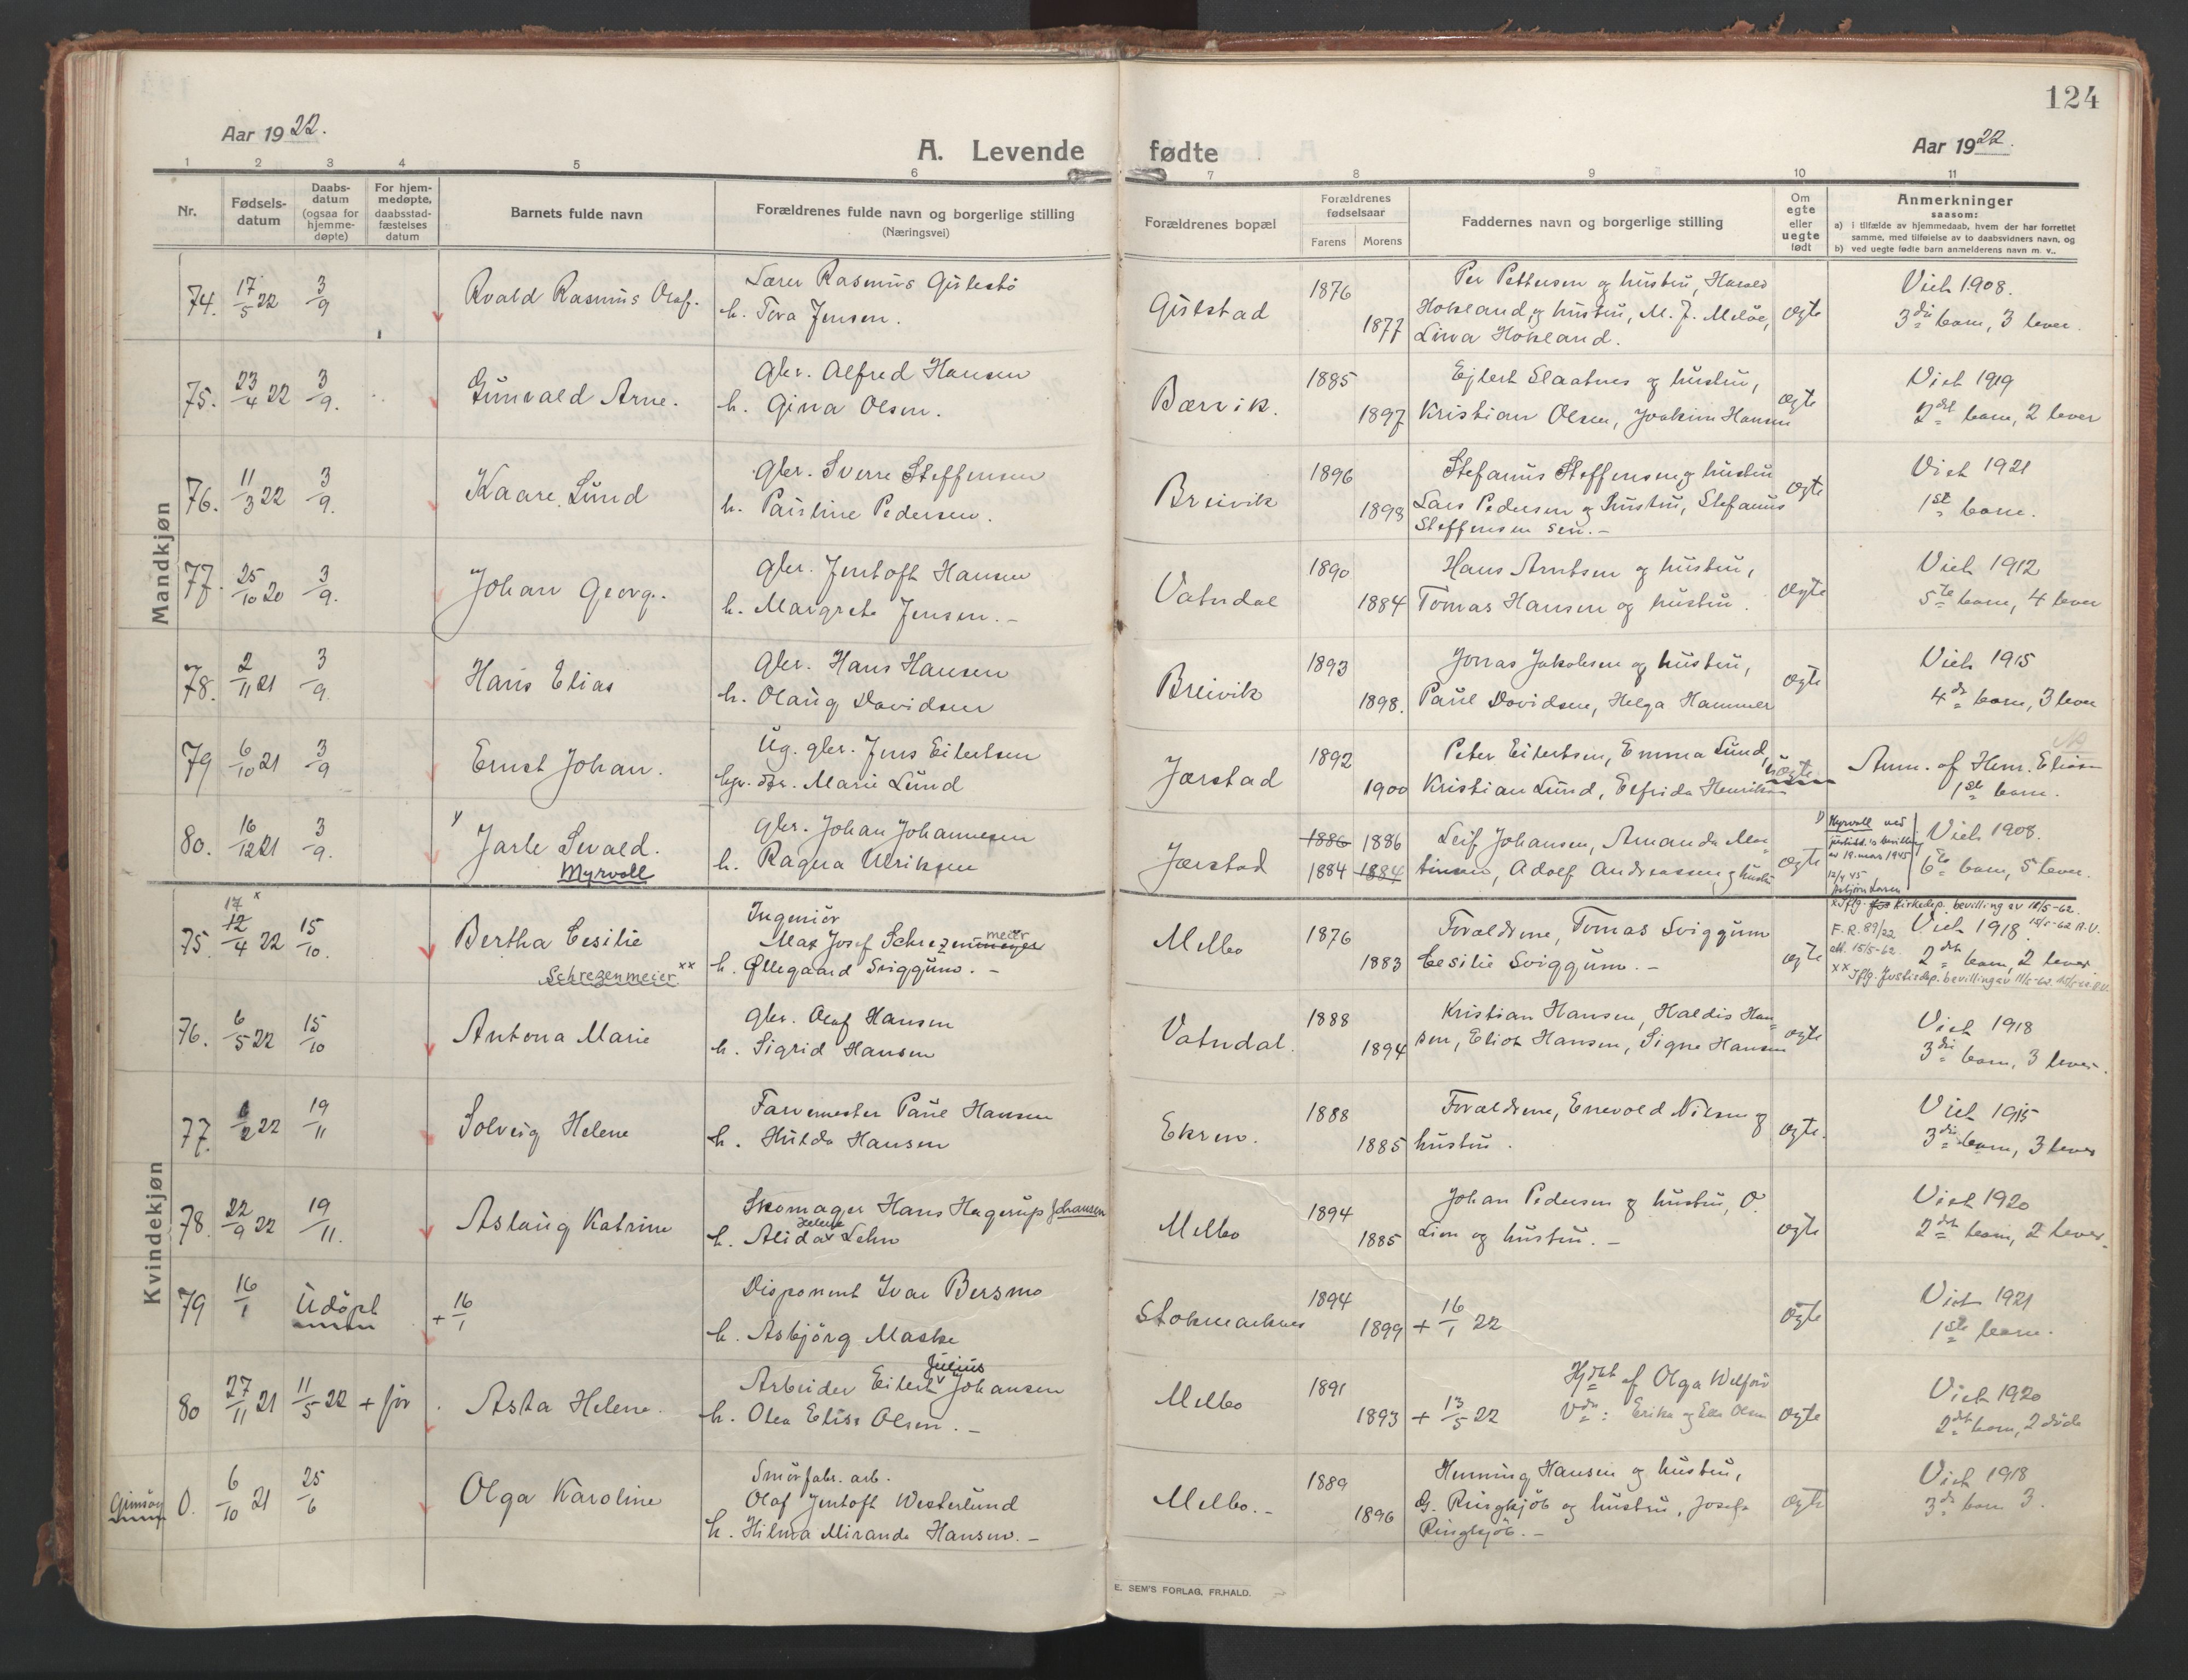 124
Aar 1922.
A. Levende fødte
Aar 1922.
1 2 3 4 5 6 7 8 9 10 11
Nr.
Fødsels-
datum
Daabs-
datum
(ogsaa for
hjemme-
døpte)
For hjem-
medøpte,
daabsstad-
fæstelses
datum
Barnets fulde navn
Forældrenes fulde navn og borgerlige stilling
(Næringsvei)
Forældrenes bopæl
Forældrenes
fødselsaar
Farens Morens
Faddernes navn og borgerlige stilling
Om
egte
eller
uegte
født
Anmerkninger
saasom:
a) i tilfælde av hjemmedaab, hvem der har forrettet
samme, med tilføielse av to daabsvidners navn, og
b) ved uegte fødte barn anmelderens navn m. v..
Mandkjøn
74. 17/5 22 3/9
Rvald Rasmus Olaf.
Lærer Rasmus Gulestø
h. Tora Jensen.
Gulstad
1876
1877
Per Pettersen og hustru, Harald
Hokland og hustru, M. J. Meløe,
Lina Hokland.
ægte
Viet 1908.
3die barn, 3 lever.
75. 23/4 22 3/9.
Gunvald Arne.
gbr. Alfred Hansen
h. Gina Olsen.
Børvik.
1885
1897
Ejlert Slaatnes og hustru,
Kristian Olsen, Joakim Hansen
ægte
Viet 1919
2det barn, 2 lever
76. 11/3 22 3/9.
Kaare Lund
gbr. Sverre Steffensen
h. Pauline Pedersen.
Breivik
1896
1893
Stefanus Steffensen og hustru
Lars Pedersen og hustru, Stefanus
Steffensen sen. -
ægte
Viet 1921
1ste barn.
77. 25/10 20 3/9.
Johan Georg.
gbr. Jentoft Hansen
h. Margrete Jensen. -
Vatndal
1890
1884
Hans Arntsen og hustru,
Tomas Hansen og hustru.
ægte
Viet 1912
5te barn, 4 lever
78. 2/11 21 3/9.
Hans Elias
gbr. Hans Hansen
h. Olaug Davidsen
Breivik
1893
1898.
Jonas Jakobsen og hustru,
Paul Davidsen, Helga Hammer
ægte
Viet 1915
4de barn, 3 lever
79 6/10 21 3/9
Ernst Johan.
Ug. gbr. Jens Eilertsen
Marie Lund
Jørstad
1892
1900
Peter Eilertsen, Emma Lund,
Kristian Lund, Elfrida Henriksen
uægte
Anm. af Henr. Eliasen
1ste barn.
80. 16/12 21 3/9.
Jarle Sevald.
Myrvoll
gbr. Johan Johannesen
h. Ragna Ulriksen
Jørstad
1886 1886
1884 1884
Leif Johansen, Amanda Mor-
tinsen, Adolf Andreassen og hustru
ægte
Myrvoll ved
justisd.s bevilling
av 19. mars 1945
12/4 45
Viet 1908.
6te barn, 5 lever.
Kvindekjøn
75. 17 x
12/4 22 15/10.
Bertha Cesilie
Schrezenmeier xx
Ingeniør
Max Josef Schrezenmeier
h. Øllegaard Sviggum. -
Melbo
1876
1883
Forældrene, Tomas Sviggum
Cesilie Sviggum. -
ægte
x Iflg. Kirkedep. bevilling av 18/5-62.
F. R. 89/22
att. 15/5-62.
Viet 1918
15/5-62 A.V.
2det barn, 2 lever
xx Iflg. Justisdep. bevilling av
76. 6/5 22 15/10
Antona Marie
gbr. Olaf Hansen
h. Sigrid Hansen
Vatndal.
1888
1894
Kristian Hansen, Haldis Han-
sen, Eliot Hansen, Signe Hansen
ægte
Viet 1918
3die barn, 3 lever.
77. 6/2 22 19/11
Solveig Helene
Farvemester Paul Hansen
h. Hulda Hansen
Ekren.
1888
1885
Forældrene, Enevold Nilsen og
hustru.
ægte.
Viet 1915
3die barn, 3 lever
78. 22/9 22 19/11.
Aslaug Katrine
Skomager Hans Hagerup Johansen
Helene
h. Alida v Lehn
Melbo
1894
1885
Johan Pedersen og hustru, O.
Lien og hustru. -
ægte
Viet 1920
2det barn, 2 lever.
79 16/1 Udøpt
+ 16/1
Disponent Ivar Bersmo
h. Asbjørg Maske
Stokmarknes
1894
1899
+ 16/1 22
ægte
Viet 1921
1ste barn.
80 27/11 21 11/5 22 + før.
Asta Helene.
Julius
Arbeider Eilert v Johansen
h. Olea Elise Olsen. -
Melbo
1891
1893
+ 13/5 22
Hjdøbt af Olga Welfør
Vdn: Erika og Ella Olsen
ægte
Viet 1920
2det barn, 2 døde
Gimsøy
0. 6/10 21 25/6
Olga Karoline
Smørfabr. arb.
Olaf Jentoft Westerlund
h. Hilma Miranda Hansen. -
Melbo. -
1889
1896
Henning Hansen og hustru,
G. Ringkjøb og hustru, Josefa
Ringkjøb. -
ægte
Viet 1918
3de barn 3.
E. SEM'S FORLAG, FR.HALD.